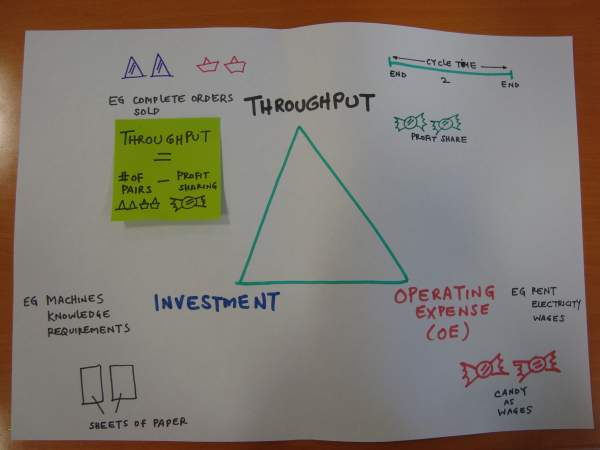 CYCLE TIME
END
2
END
EG COMPLETE ORDERS
SOLD
THROUGHPUT
PROFIT SHARE
THROUGHPUT
=
# OF
PAIRS
–
PROFIT
SHARING
EG MACHINES
KNOWLEDGE
REQUIREMENTS
INVESTMENT
OPERATING
EXPENSE
(OE)
EG RENT
ELECTRICITY
WAGES
SHEETS OF PAPER
CANDY
AS
WAGES